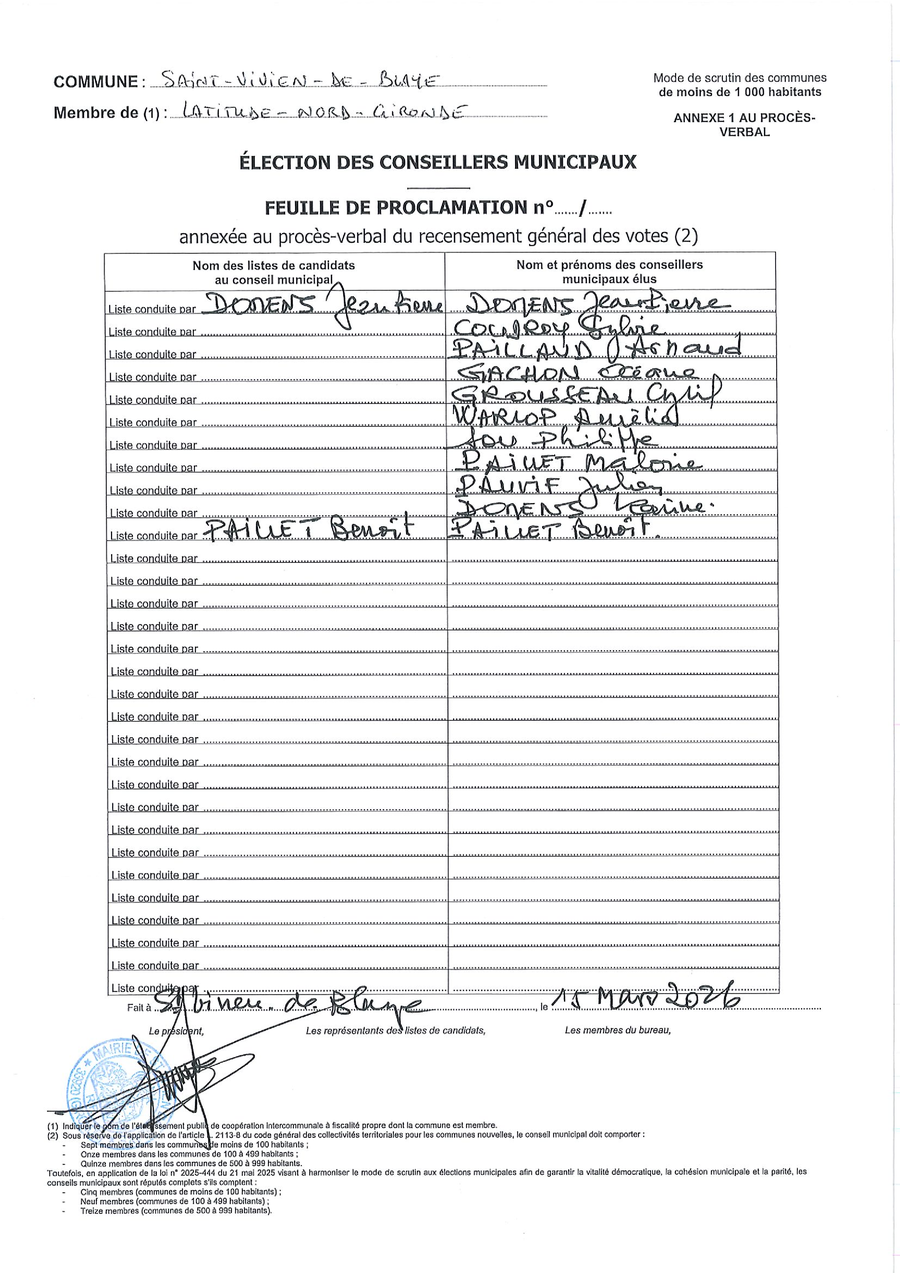 COMMUNE : SAINT-VIVIEN-DE-BLAYE
Mode de scrutin des communes
de moins de 1 000 habitants
Membre de (1) : LATITUDE-NORD-GIRONDE
ANNEXE 1 AU PROCÈS-
VERBAL
ÉLECTION DES CONSEILLERS MUNICIPAUX
FEUILLE DE PROCLAMATION n°......./.......
annexée au procès-verbal du recensement général des votes (2)
Nom des listes de candidats
au conseil municipal
Nom et prénoms des conseillers
municipaux élus
Liste conduite par DOMENS Jean Pierre DOMENS Jean Pierre
Liste conduite par COUDROY Sylvie
Liste conduite par PAILLAUD Arnaud
Liste conduite par GACHON Océane
Liste conduite par GROUSSEAU Cyril
Liste conduite par WARLOP Amélia
Liste conduite par Philippe
Liste conduite par PAILLET Malorie
Liste conduite par PAUVIF Julien
Liste conduite par DOMENS Karine.
Liste conduite par PAILLET Benoît PAILLET Benoît.
Liste conduite par
Liste conduite par
Liste conduite par
Liste conduite par
Liste conduite par
Liste conduite par
Liste conduite par
Liste conduite par
Liste conduite par
Liste conduite par
Liste conduite par
Liste conduite par
Liste conduite par
Liste conduite par
Liste conduite par
Liste conduite par
Liste conduite par
Liste conduite par
Liste conduite par
Liste conduite par
Fait à St Vivien-de-Blaye, le 15 Mars 2026
Le président,
Les représentants des listes de candidats,
Les membres du bureau,
MAIRIE DE
(1) Indiquer le nom de l'établissement public de coopération intercommunale à fiscalité propre dont la commune est membre.
(2) Sous réserve de l'application de l'article L. 2113-8 du code général des collectivités territoriales pour les communes nouvelles, le conseil municipal doit comporter :
- Sept membres dans les communes de moins de 100 habitants ;
- Onze membres dans les communes de 100 à 499 habitants ;
- Quinze membres dans les communes de 500 à 999 habitants.
Toutefois, en application de la loi n° 2025-444 du 21 mai 2025 visant à harmoniser le mode de scrutin aux élections municipales afin de garantir la vitalité démocratique, la cohésion municipale et la parité, les
conseils municipaux sont réputés complets s'ils comptent :
- Cinq membres (communes de moins de 100 habitants) ;
- Neuf membres (communes de 100 à 499 habitants) ;
- Treize membres (communes de 500 à 999 habitants).